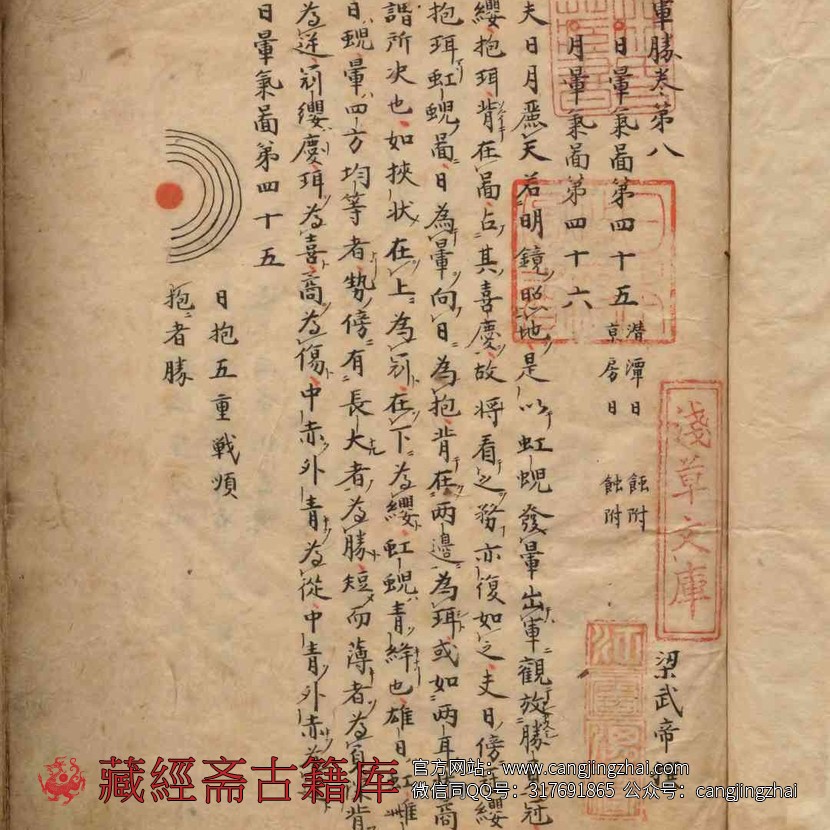 軍勝卷第八
梁武帝
日暈氣啚第四十五 潛潭日 蝕附
月暈氣啚第四十六 京房日 蝕附
夫日月麗天若明鏡照地是以虹蜺發暈出軍觀放勝
冠纓抱珥背在啚占其喜慶故將看之務亦復如之夫日傍
抱珥虹蜺啚日為暈向日為抱背在兩邊為珥或如兩耳
謟所决也如挾状在上為冠在下為纓虹蜺青絳也雄日虹雌
日蜺暈四方均等者勢傍有長大者為勝短而薄者為
為逆冠纓慶珥為喜喬為傷中赤外青為從中青外赤為
日暈氣啚第四十五
日抱五重戦順
抱者勝
淺草文庫
藏經斋古籍库
官方网站：www.cangjingzhai.com
微信同QQ号：317691865 公众号：cangjingzhai